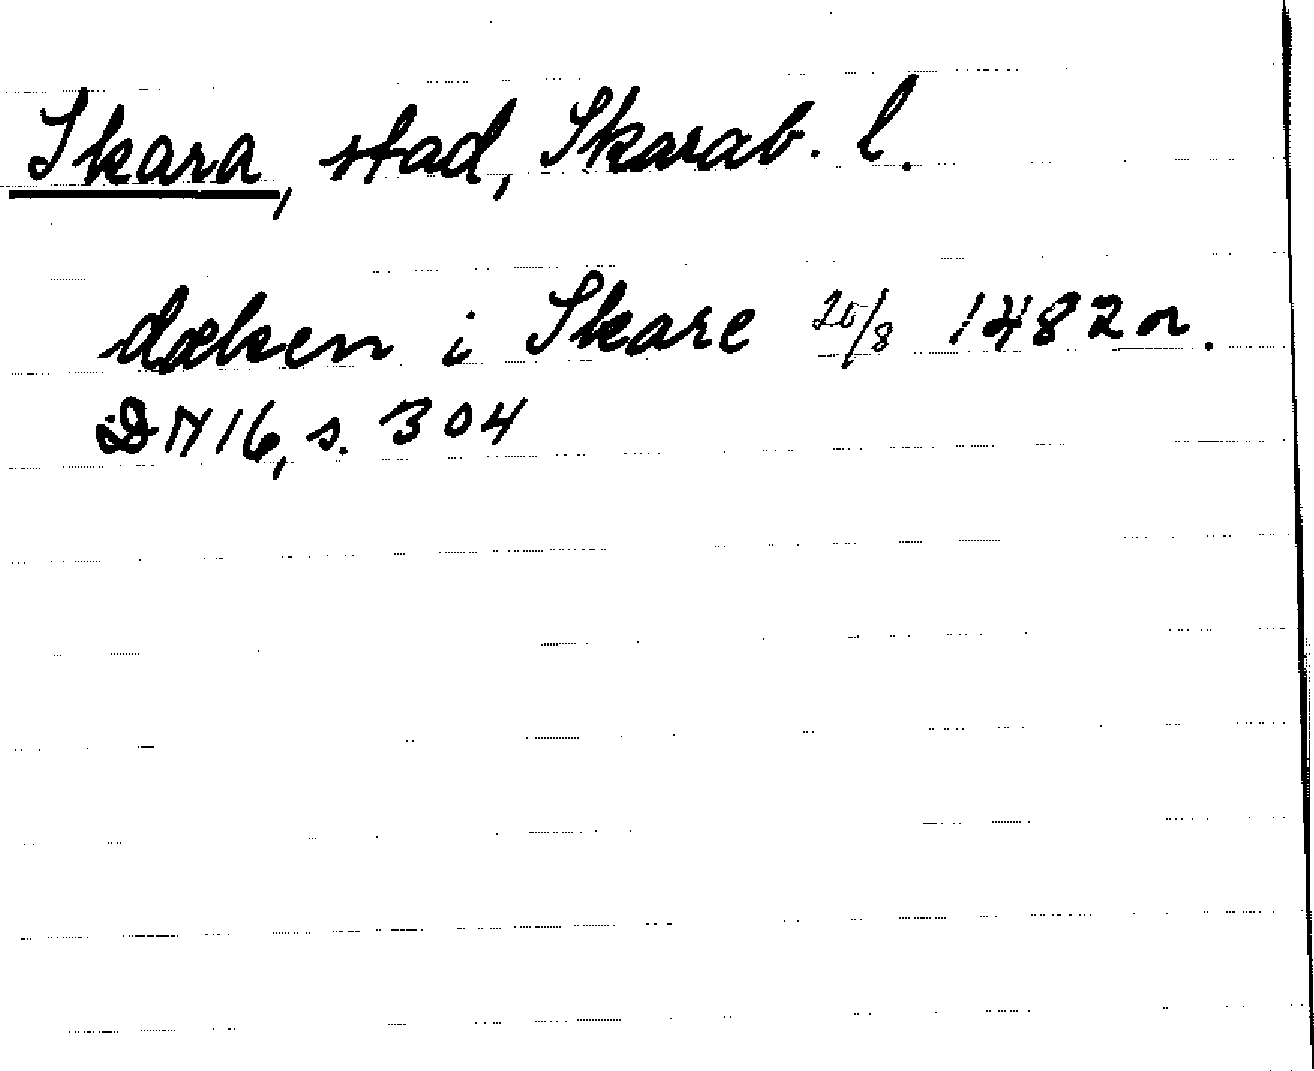 Skara, stad, Skarab. l.
dæken i Skare 20/8 1482 or.
DN 16, s. 304